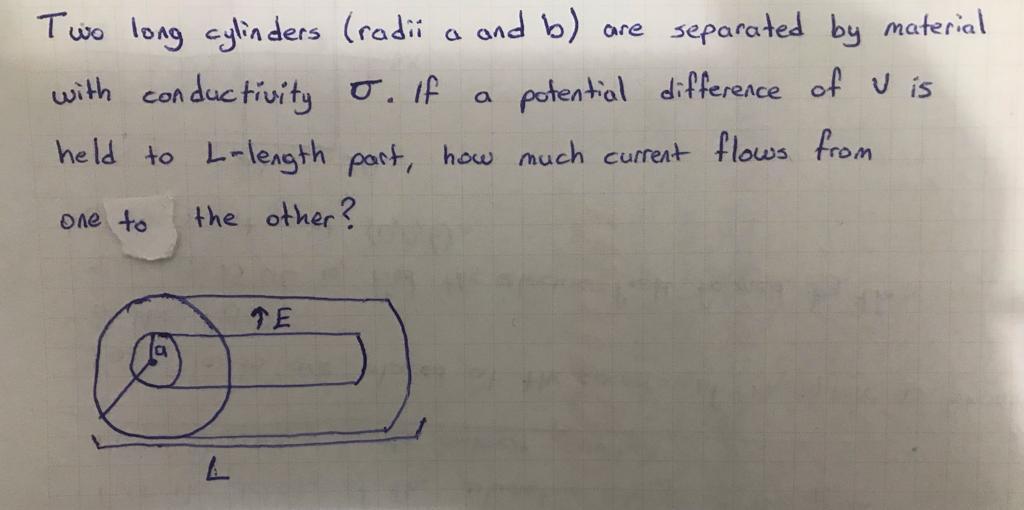 Two long cylinders (radii a and b) are separated by material
with conductivity σ. If a potential difference of V is
held to L-length part, how much current flows from
one to the other?
↑E
a
L